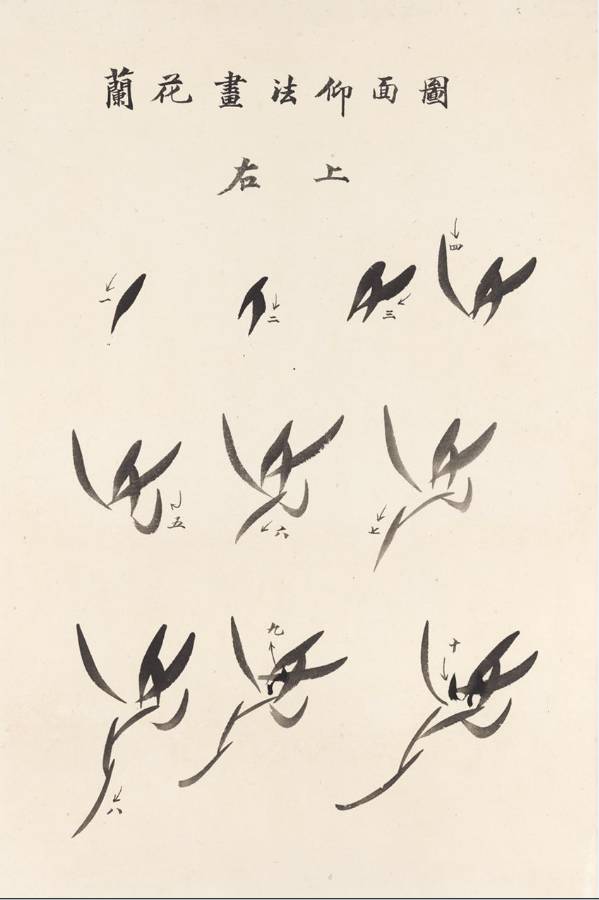 蘭花畫法仰面圖
右上
一
二
三
四
五
六
七
八
九
十